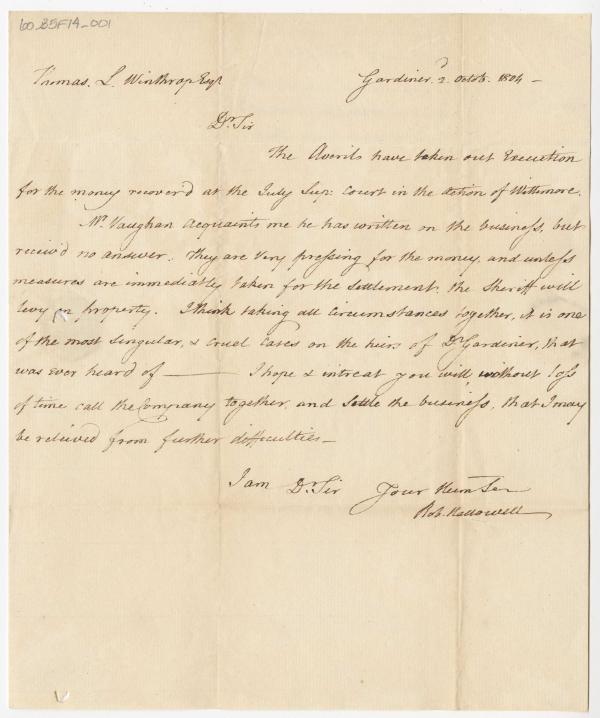 60.B5F14_001
Thomas. L. Winthrop Esqr
Gardiner. 2d Octob. 1804 —
Dr Sir
The Averils have taken out Execution
for the money recover'd at the July Sup: Court in the action of Wittimore.
Mr Vaughan acquaints me he has written on the business, but
receiv'd no answer. They are very pressing for the money, and unless
measures are immediatly taken for the settlement, the Sheriff will
levy on property. I think taking all Circumstances together, it is one
of the most singular, & cruel Cases on the heirs of Dr Gardiner, that
was ever heard of ——— I hope & intreat you will without loss
of time call the Company together, and settle the business, that I may
be relieved from further difficulties —
I am Dr Sir Your Hum Ser
Rob. Hallowell